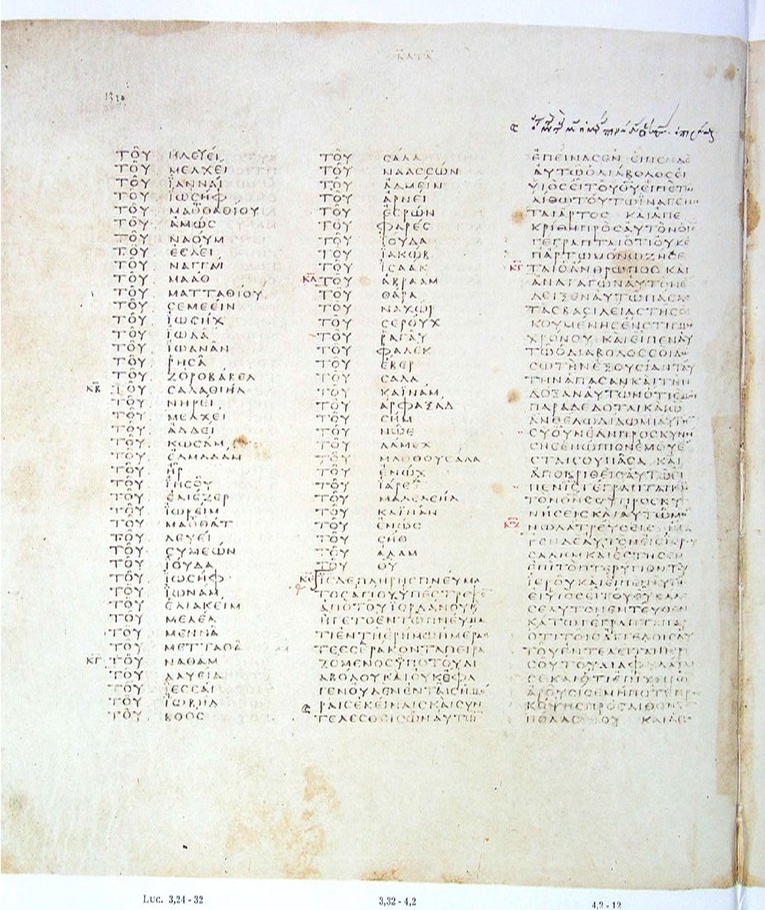 ΚΑΤΑ
ΤΟΥ ΗΛΕΥΕΙ
ΤΟΥ ΜΕΛΧΕΙ
ΤΟΥ ΙΑΝΝΑΙ
ΤΟΥ ΙΩΣΗΦ
ΤΟΥ ΜΑΘΘΑΘΙΟΥ
ΤΟΥ ΑΜΩΣ
ΤΟΥ ΝΑΟΥΜ
ΤΟΥ ΕΣΛΕΙ
ΤΟΥ ΝΑΓΓΑΙ
ΤΟΥ ΜΑΑΘ
ΤΟΥ ΜΑΤΤΑΘΙΟΥ
ΤΟΥ ΣΕΜΕΕΙΝ
ΤΟΥ ΙΩΣΗΧ
ΤΟΥ ΙΩΔΑ
ΤΟΥ ΙΩΑΝΑΝ
ΤΟΥ ΡΗΣΑ
ΤΟΥ ΖΟΡΟΒΑΒΕΛ
ΚΒ ΤΟΥ ΣΑΛΑΘΙΗΛ
ΤΟΥ ΝΗΡΕΙ
ΤΟΥ ΜΕΛΧΕΙ
ΤΟΥ ΑΔΔΕΙ
ΤΟΥ ΚΩΣΑΜ
ΤΟΥ ΕΛΜΑΔΑΜ
ΤΟΥ ΗΡ
ΤΟΥ ΙΗΣΟΥ
ΤΟΥ ΕΛΙΕΖΕΡ
ΤΟΥ ΙΩΡΕΙΜ
ΤΟΥ ΜΑΘΘΑΤ
ΤΟΥ ΛΕΥΕΙ
ΤΟΥ ΣΥΜΕΩΝ
ΤΟΥ ΙΟΥΔΑ
ΤΟΥ ΙΩΣΗΦ
ΤΟΥ ΙΩΝΑΜ
ΤΟΥ ΕΛΙΑΚΕΙΜ
ΤΟΥ ΜΕΛΕΑ
ΤΟΥ ΜΕΝΝΑ
ΤΟΥ ΜΕΤΤΑΘΑ
ΚΓ ΤΟΥ ΝΑΘΑΜ
ΤΟΥ ΔΑΥΕΙΔ
ΤΟΥ ΙΕΣΣΑΙ
ΤΟΥ ΙΩΒΗΛ
ΤΟΥ ΒΟΟΣ
ΤΟΥ ΣΑΛΑ
ΤΟΥ ΝΑΑΣΣΩΝ
ΤΟΥ ΑΔΜΕΙΝ
ΤΟΥ ΑΡΝΕΙ
ΤΟΥ ΕΣΡΩΝ
ΤΟΥ ΦΑΡΕΣ
ΤΟΥ ΙΟΥΔΑ
ΤΟΥ ΙΑΚΩΒ
ΤΟΥ ΙΣΑΑΚ
ΚΔ ΤΟΥ ΑΒΡΑΑΜ
ΤΟΥ ΘΑΡΑ
ΤΟΥ ΝΑΧΩΡ
ΤΟΥ ΣΕΡΟΥΧ
ΤΟΥ ΡΑΓΑΥ
ΤΟΥ ΦΑΛΕΚ
ΤΟΥ ΕΒΕΡ
ΤΟΥ ΣΑΛΑ
ΤΟΥ ΚΑΙΝΑΜ
ΤΟΥ ΑΡΦΑΞΑΔ
ΤΟΥ ΣΗΜ
ΤΟΥ ΝΩΕ
ΤΟΥ ΛΑΜΕΧ
ΤΟΥ ΜΑΘΟΥΣΑΛΑ
ΤΟΥ ΕΝΩΧ
ΤΟΥ ΙΑΡΕΤ
ΤΟΥ ΜΑΛΕΛΕΗΛ
ΤΟΥ ΚΑΙΝΑΝ
ΤΟΥ ΕΝΩΣ
ΤΟΥ ΣΗΘ
ΤΟΥ ΑΔΑΜ
ΤΟΥ ΘΥ
ΚΕ ΙΣ ΔΕ ΠΛΗΡΗΣ ΠΝΕΥΜΑ
ΤΟΣ ΑΓΙΟΥ ΥΠΕΣΤΡΕΨΕ
ΑΠΟ ΤΟΥ ΙΟΡΔΑΝΟΥ Κ
ΗΓΕΤΟ ΕΝ ΤΩ ΠΝΕΥΜΑ
ΤΙ ΕΝ ΤΗ ΕΡΗΜΩ ΗΜΕΡΑΣ
ΤΕΣΣΕΡΑΚΟΝΤΑ ΠΕΙΡΑ
ΖΟΜΕΝΟΣ ΥΠΟ ΤΟΥ ΔΙ
ΑΒΟΛΟΥ ΚΑΙ ΟΥΚ ΕΦΑ
ΓΕΝ ΟΥΔΕΝ ΕΝ ΤΑΙΣ ΗΜΕ
ΡΑΙΣ ΕΚΕΙΝΑΙΣ ΚΑΙ ΣΥΝ
ΤΕΛΕΣΘΕΙΣΩΝ ΑΥΤΩΝ
ΕΠΕΙΝΑΣΕΝ ΕΙΠΕΝ ΔΕ
ΑΥΤΩ Ο ΔΙΑΒΟΛΟΣ ΕΙ
ΥΙΟΣ ΕΙ ΤΟΥ ΘΥ ΕΙΠΕ ΤΩ
ΛΙΘΩ ΤΟΥΤΩ ΙΝΑ ΓΕΝΗ
ΤΑΙ ΑΡΤΟΣ ΚΑΙ ΑΠΕ
ΚΡΙΘΗ ΠΡΟΣ ΑΥΤΟΝ Ο ΙΣ
ΓΕΓΡΑΠΤΑΙ ΟΤΙ ΟΥΚ Ε
Π ΑΡΤΩ ΜΟΝΩ ΖΗΣΕ
ΤΑΙ Ο ΑΝΘΡΩΠΟΣ ΚΑΙ
ΑΝΑΓΑΓΩΝ ΑΥΤΟΝ Ε
ΔΕΙΞΕΝ ΑΥΤΩ ΠΑΣΑΣ
ΤΑΣ ΒΑΣΙΛΕΙΑΣ ΤΗΣ ΟΙ
ΚΟΥΜΕΝΗΣ ΕΝ ΣΤΙΓΜΗ
ΧΡΟΝΟΥ ΚΑΙ ΕΙΠΕΝ ΑΥ
ΤΩ Ο ΔΙΑΒΟΛΟΣ ΣΟΙ ΔΩ
ΣΩ ΤΗΝ ΕΞΟΥΣΙΑΝ ΤΑΥ
ΤΗΝ ΑΠΑΣΑΝ ΚΑΙ ΤΗΝ
ΔΟΞΑΝ ΑΥΤΩΝ ΟΤΙ ΕΜΟΙ
ΠΑΡΑΔΕΔΟΤΑΙ ΚΑΙ Ω
ΑΝ ΘΕΛΩ ΔΙΔΩΜΙ ΑΥΤΗ
ΣΥ ΟΥΝ ΕΑΝ ΠΡΟΣΚΥΝΗ
ΣΗΣ ΕΝΩΠΙΟΝ ΕΜΟΥ Ε
ΣΤΑΙ ΣΟΥ ΠΑΣΑ ΚΑΙ
ΑΠΟΚΡΙΘΕΙΣ ΑΥΤΩ ΕΙ
ΠΕΝ Ο ΙΣ ΓΕΓΡΑΠΤΑΙ ΚΝ
ΤΟΝ ΘΝ ΣΟΥ ΠΡΟΣΚΥ
ΝΗΣΕΙΣ ΚΑΙ ΑΥΤΩ ΜΟ
ΝΩ ΛΑΤΡΕΥΣΕΙΣ ΗΓΑ
ΓΕΝ ΔΕ ΑΥΤΟΝ ΕΙΣ ΙΕΡΟΥ
ΣΑΛΗΜ ΚΑΙ ΕΣΤΗΣΕΝ
ΕΠΙ ΤΟ ΠΤΕΡΥΓΙΟΝ ΤΟΥ
ΙΕΡΟΥ ΚΑΙ ΕΙΠΕΝ ΑΥΤΩ
ΕΙ ΥΙΟΣ ΕΙ ΤΟΥ ΘΥ ΒΑΛΕ
ΣΕΑΥΤΟΝ ΕΝΤΕΥΘΕΝ
ΚΑΤΩ ΓΕΓΡΑΠΤΑΙ ΓΑΡ
ΟΤΙ ΤΟΙΣ ΑΓΓΕΛΟΙΣ ΑΥ
ΤΟΥ ΕΝΤΕΛΕΙΤΑΙ ΠΕΡΙ
ΣΟΥ ΤΟΥ ΔΙΑΦΥΛΑΞΑΙ
ΣΕ ΚΑΙ ΟΤΙ ΕΠΙ ΧΕΙΡΩΝ
ΑΡΟΥΣΙ ΣΕ ΜΗΠΟΤΕ ΠΡΟΣ
ΚΟΨΗΣ ΠΡΟΣ ΛΙΘΟΝ
ΠΟΔΑ ΣΟΥ ΚΑΙ
Luc. 3,24-32
3,32-4,2
4,2-12